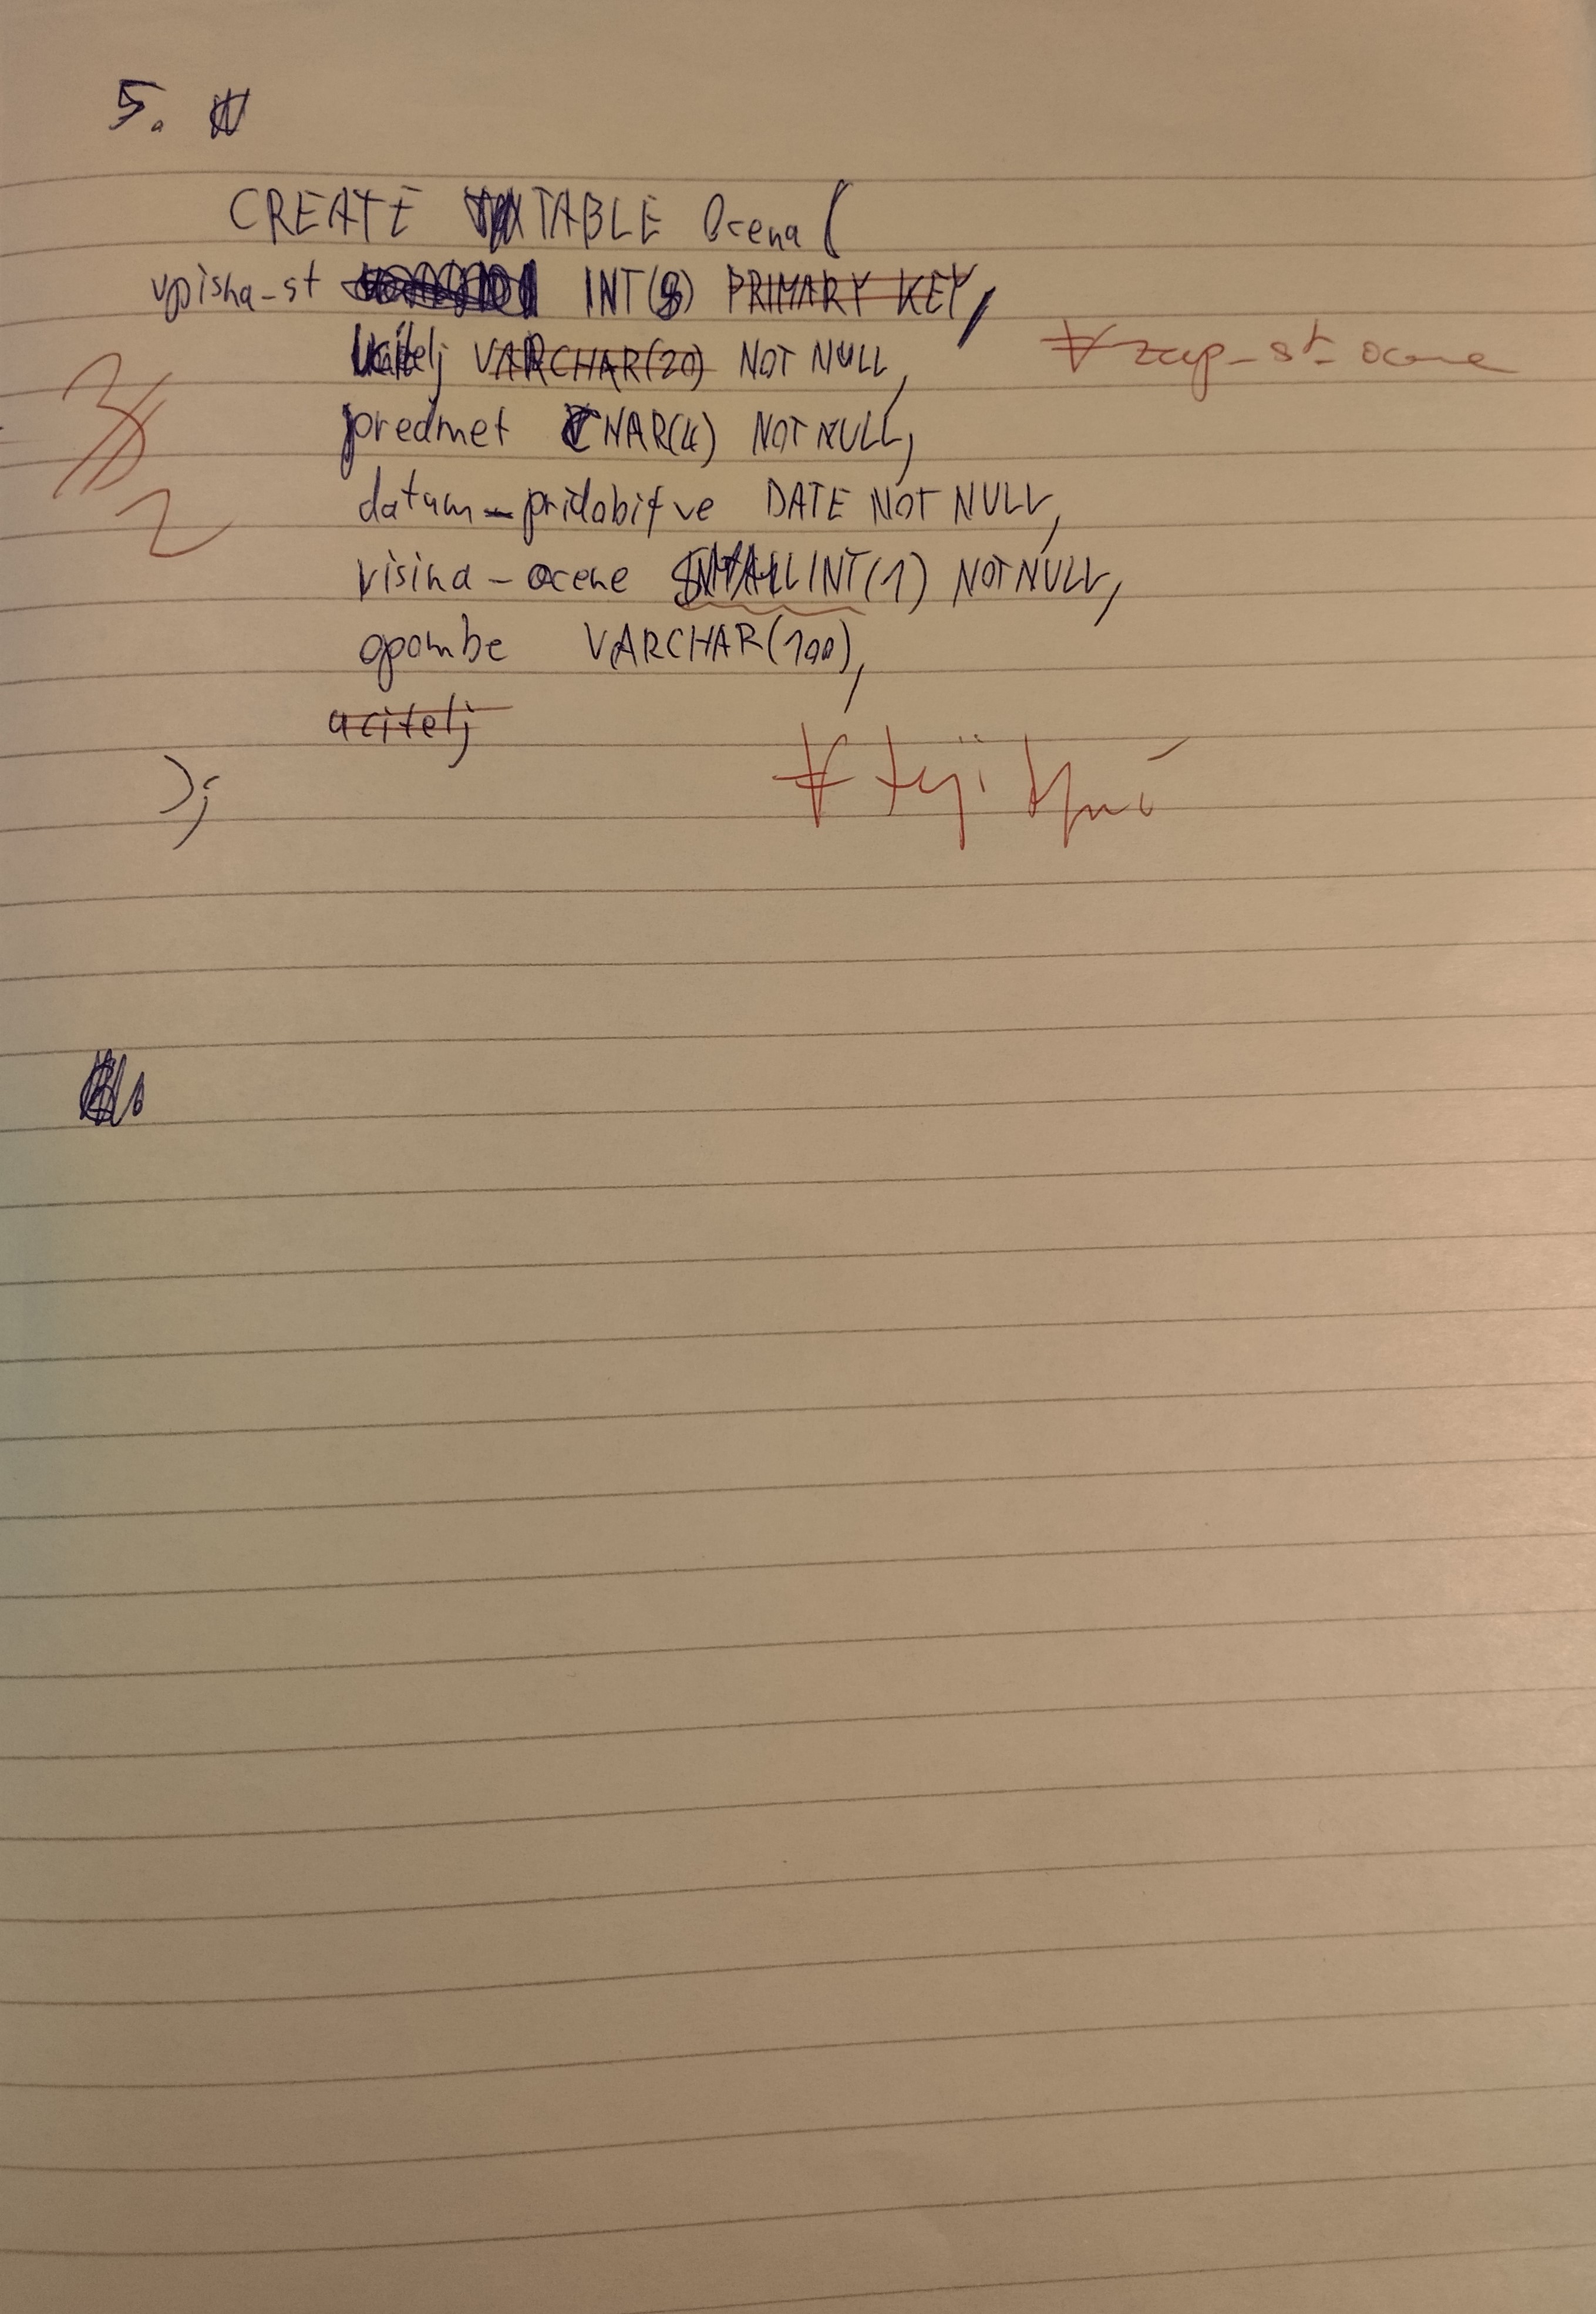 5.
CREATE TABLE Ocena (
vpisna-st INT(8) PRIMARY KEY,
Ucitelj VARCHAR(20) NOT NULL,
∀ zap-st-ocene
predmet CHAR(4) NOT NULL,
datum-pridobitve DATE NOT NULL,
visina-ocene SMALLINT(1) NOT NULL,
2
opombe VARCHAR(100),
ucitelj
);
∀ tuji